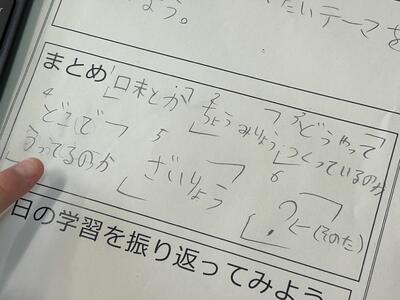 たいテーマを
よう。
まとめ
味とか
2 ちょうみりょう
3 どうやって
つくっているのか
4 どこで
うってるのか
5 ざいりょう
6 ?←(そのた)
日の学習を振り返ってみよう